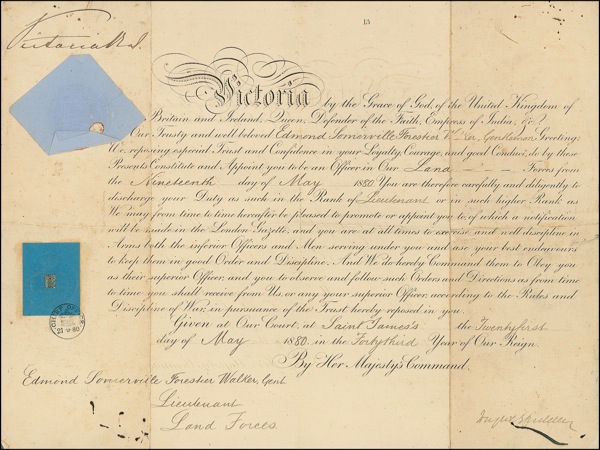 Victoria R.I.
Victoria by the Grace of God, of the United Kingdom of
Britain and Ireland, Queen, Defender of the Faith, Empress of India, &c.
Our Trusty and well beloved Edmond Somerville Forestier Gentleman Greeting:
We, reposing special Trust and Confidence in your Loyalty, Courage, and good Conduct, do by these
Presents Constitute and Appoint you to be an Officer in Our Land Forces from
the Nineteenth day of May 1880. You are therefore carefully and diligently to
discharge your Duty as such in the Rank of Lieutenant or in such higher Rank as
We may from time to time hereafter be pleased to promote or appoint you to, of which a notification
will be made in the London Gazette, and you are at all times to exercise and well discipline in
Arms both the inferior Officers and Men serving under you and use your best endeavours
to keep them in good Order and Discipline. And We do hereby Command them to Obey you
as their superior Officer, and you to observe and follow such Orders and Directions as from time
to time you shall receive from Us, or any your superior Officer, according to the Rules and
Discipline of War, in pursuance of the Trust hereby reposed in you.
Given at Our Court, at Saint James's the Twentyfirst
day of May 1880 in the Fortythird Year of Our Reign.
By Her Majesty's Command.
Edmond Somerville Forestier Walker, Gent
Lieutenant
Land Forces